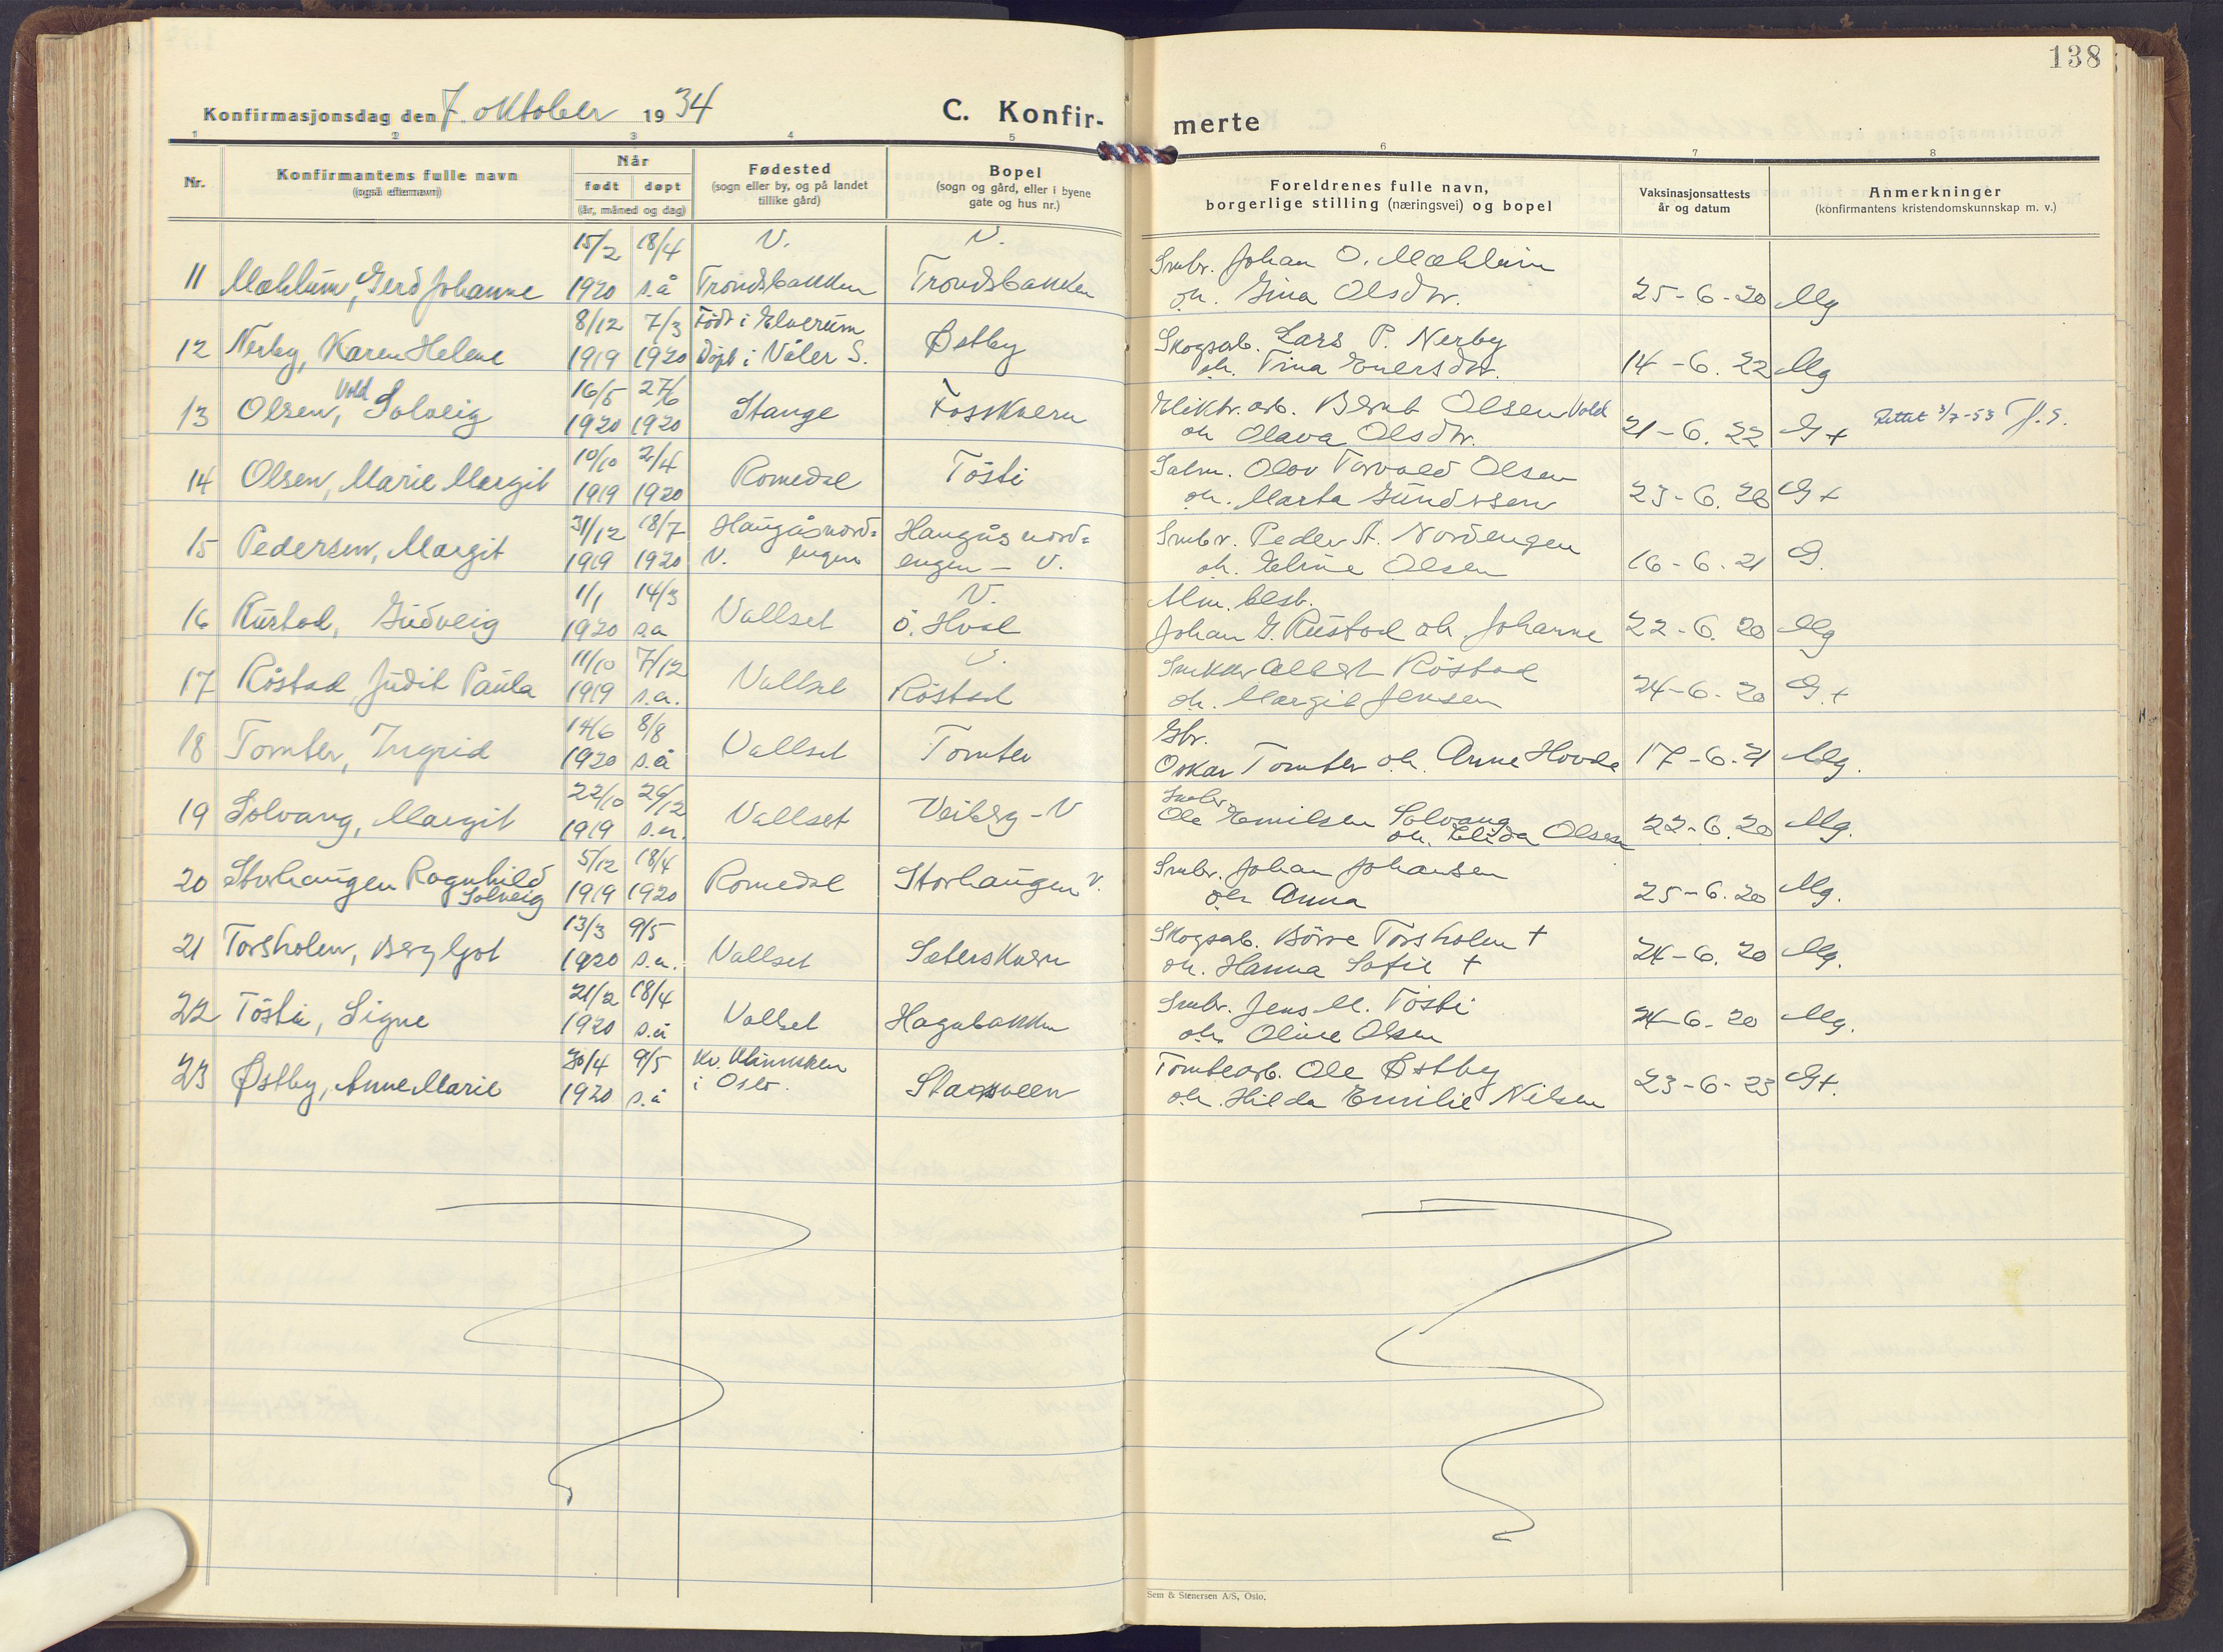 138
Konfirmasjonsdag den 7. oktober 1934
C. Konfir-
merte
1 2 3 4 5 6 7 8
Nr.
Konfirmantens fulle navn
(også efternavn)
Når
født døpt
(år, måned og dag)
Fødested
(sogn eller by, og på landet
tillike gård)
Bopel
(sogn og gård, eller i byene
gate og hus nr.)
Foreldrenes fulle navn,
borgerlige stilling (næringsvei) og bopel
Vaksinasjonsattests
år og datum
Anmerkninger
(konfirmantens kristendomskunnskap m. v.)
15/2 18/4 V. V. Smbr. Johan O. Mæhlum
11 Mæhlum, Gerd Johanne 1920 s.å Trondsbakken Trondsbakken oh. Gina Olsdtr. 25-6-20 Mg
8/12 7/3 Født i Elverum Skogsarb. Lars P. Nerby
12 Nerby, Karen Helene 1919 1920 Døpt i Våler S. Østby oh. Tina Enersdtr. 14-6.22 Mg
Vold 16/5 27/6 Elektr. arb. Bernt Olsen Vold
13 Olsen, Solveig 1920 1920 Stange Fosskvern oh Olava Olsdtr. 21-6.22 G+ Rettet 3/7-53
10/10 2/4 Salm. Olov Torvald Olsen
14 Olsen, Marie Margit 1919 1920 Romedal Tösti oh. Marta Gundersen 23-6.20 G+
31/12 18/7 Haugåsnord= Haugåsnord= Smbr. Peder A. Nordengen
15 Pedersen, Margit 1919 1920 V. engen engen - V. oh. Eline Olsen 16-6-21 G.
1/1 14/3 V. Alm. best.
16 Rustad, Gudveig 1920 s.a Vallset ö. Hval Johan G. Rustad oh. Johanne 22-6.20 Mg
11/10 7/12 V. Snekker Albert Röstad
17 Röstad, Judit Paula 1919 s.a. Vallset Röstad oh. Margit Jensen 24-6-20 G.+
14/6 8/8 Gbr.
18 Tomter, Ingrid 1920 s.å Vallset Tomter Oskar Tomter oh. Anne Hovde 17-6-21 Mg.
22/10 26/12 Smbr.
19 Solvang, Margit 1919 s.a. Vallset Veiberg - V Ole Emilsen Solvang
oh. Elida Olsen 22-6.20 Mg.
5/12 18/4 Smbr. Johan Johansen
20 Storhaugen Ragnhild 1919 1920 Romedal Storhaugen V. oh Anna 25-6.20 Mg.
Solveig
13/3 9/5 Skogsab. Börre Torsholen +
21 Torsholen, Bergljot 1920 s.a. Vallset Sæterskvern oh. Hanna Sofie + 24-6.20 Mg.
21/2 18/4 Smbr. Jens M. Tösti
22 Tösti, Signe 1920 s.å Vallset Hagabakken oh. Oline Olsen 24-6-20 Mg.
30/4 9/5 Kv. Klinikken Tomtearb. Ole Østby
23 Østby, Anne Marie 1920 s.å i Oslo. oh. Hilda Emilie Nilsen 23-6-23 G+.
Sem & Stenersen A/S, Oslo.